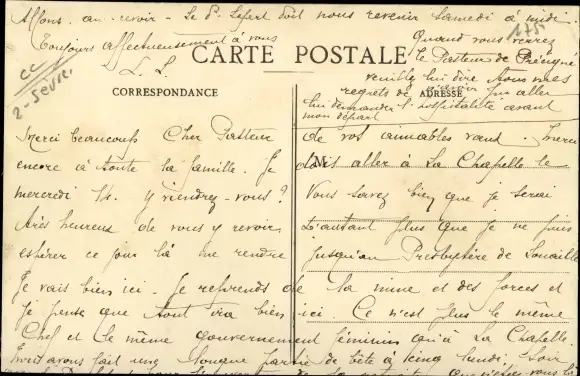 Allons, au-revoir - Le Dr Lefort doit nous revenir samedi à midi.
Toujours affectueusement à vous
L. L.
175
Quand vous verrez
le Pasteur de
veuillez lui dire tous mes
regrets de n'avoir pu aller
lui demander l'hospitalité avant
mon départ
CC
2-Sèvre.
CARTE POSTALE
CORRESPONDANCE
ADRESSE
M
Merci beaucoup Cher Pasteur de vos aimables vœux. Merci
encore à toute la famille. Je dois aller à La Chapelle le
mercredi 14. y viendrez-vous? Vous savez bien que je serai
très heureux de vous y revoir, d'autant plus que je ne puis
espérer ce jour là me rendre jusqu'au Presbytère de
Je vais bien ici. Je reprends de la mine et des forces et
je pense que tout ira bien ici. Ce n'est plus le même
Chef et le même gouvernement féminin qu'à La Chapelle.
avons fait une longue partie de bête à lundi.